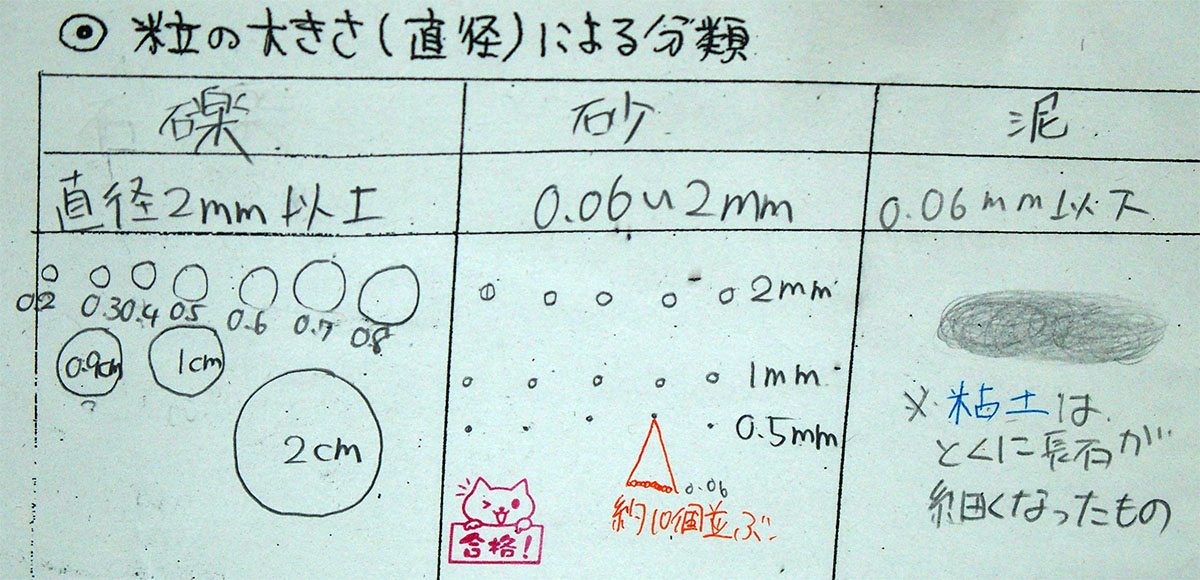 ◉ 粒の大きさ(直径)による分類
礫 砂 泥
直径2mm以上 0.06〜2mm 0.06mm以下
0.2 0.3 0.4 0.5 0.6 0.7 0.8
0.9cm 1cm
2cm
2mm
1mm
0.5mm
0.06
約10個並ぶ
合格!
※粘土は
とくに長石が
細くなったもの